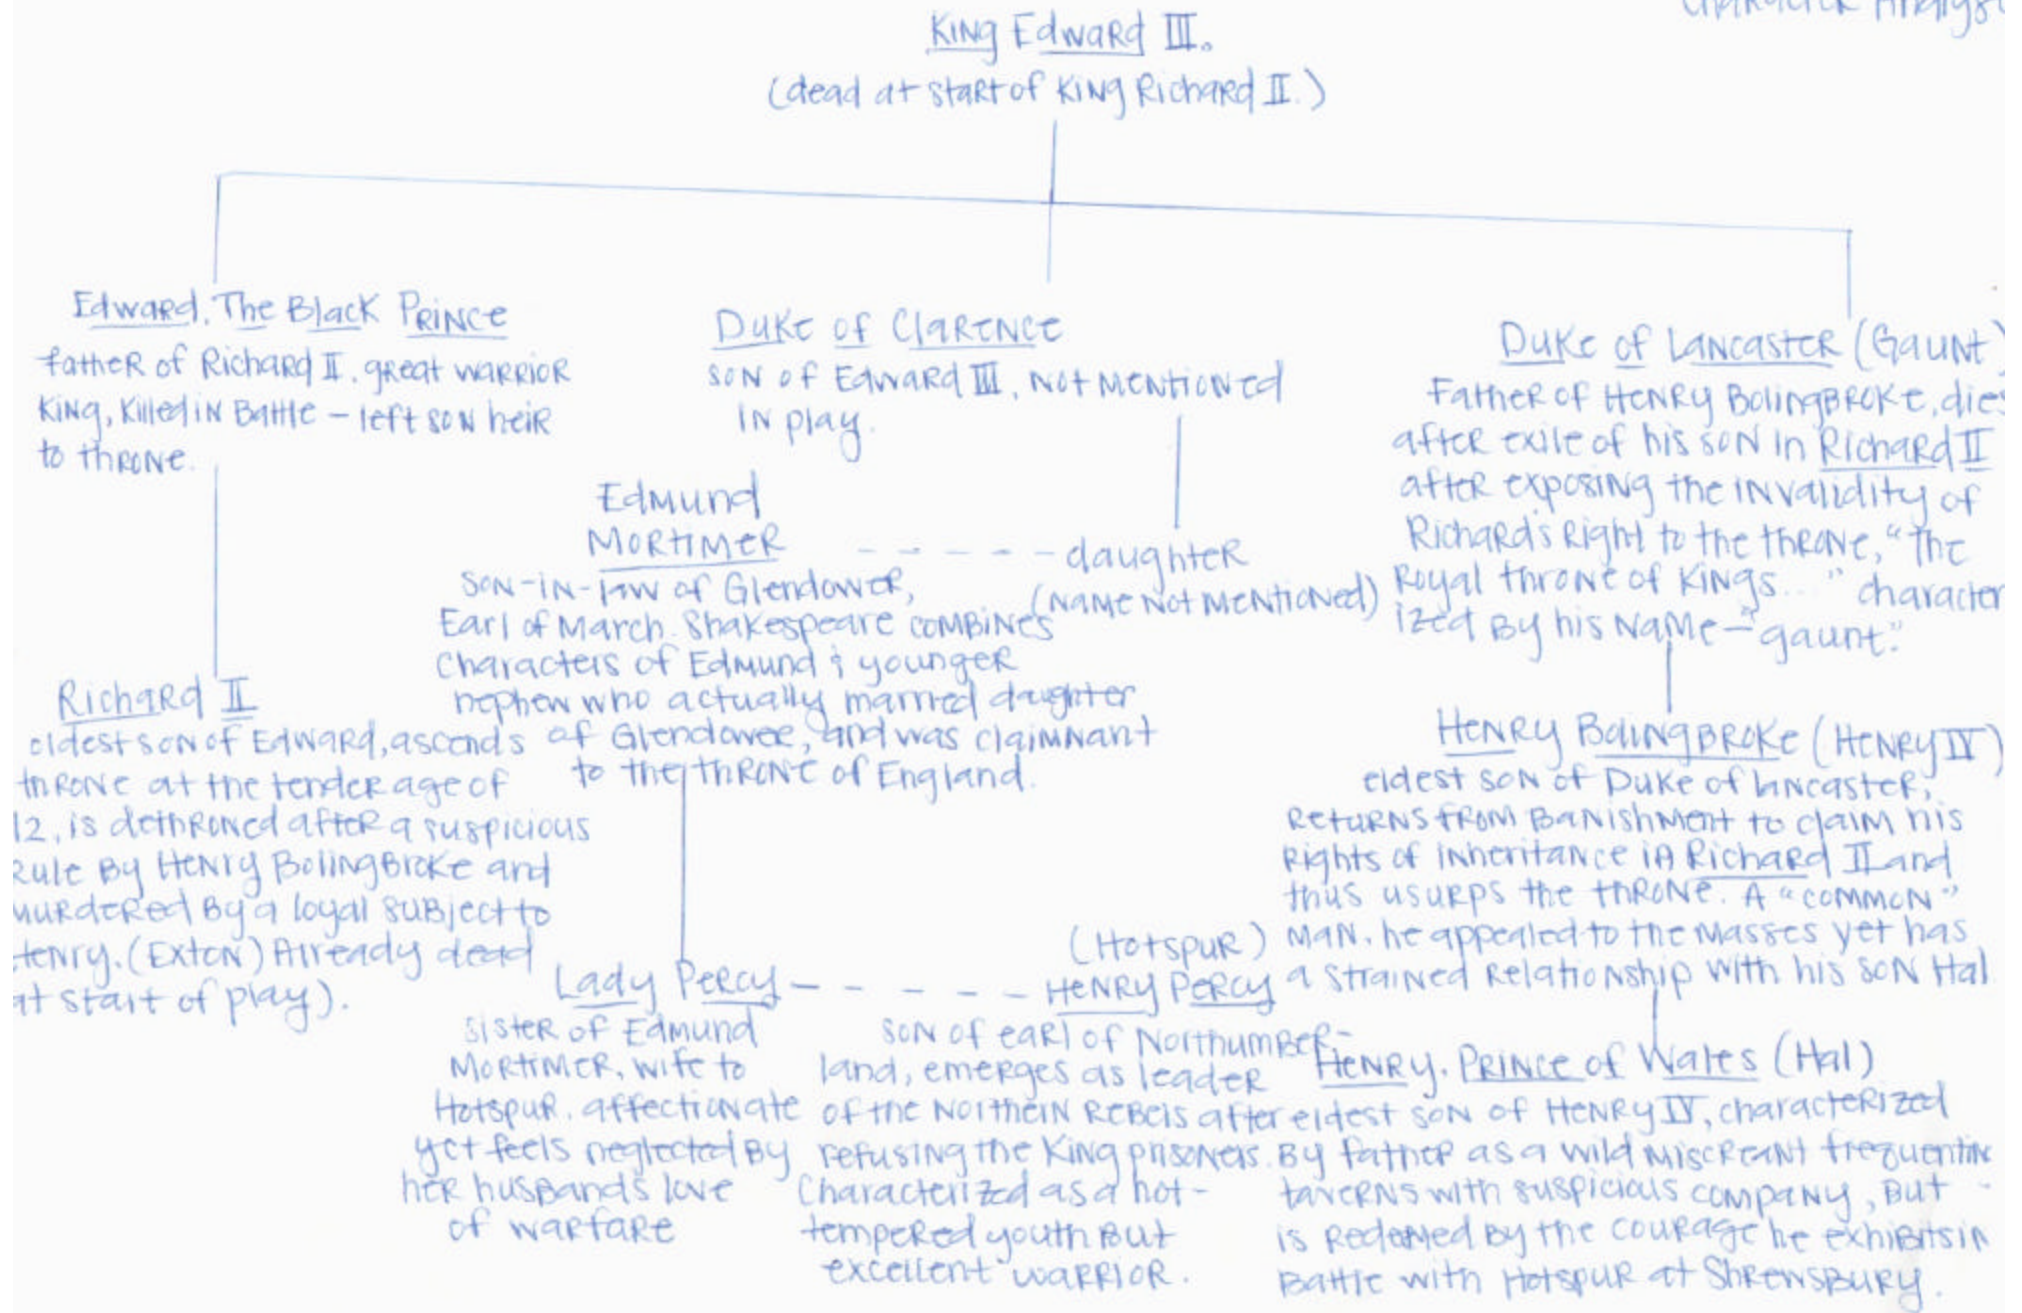 Character Analys
King Edward III.
(dead at start of King Richard II.)
Edward, The Black Prince
father of Richard II. great warrior
King, Killed in Battle – left son heir
to throne.
Richard II
eldest son of Edward, ascends
throne at the tender age of
12, is dethroned after a suspicious
Rule By Henry Bolingbroke and
murdered By a loyal subject to
Henry. (Exton) Already dead
at start of play).
Duke of Clarence
son of Edward III, not mentioned
in play.
daughter
(name not mentioned)
Edmund
Mortimer
son-in-law of Glendower,
Earl of March. Shakespeare combines
characters of Edmund & younger
nephew who actually married daughter
of Glendower, and was claimnant
to the throne of England.
Lady Percy
sister of Edmund
Mortimer, wife to
Hotspur. affectionate
yet feels neglected By
her husband's love
of warfare
(Hotspur)
Henry Percy
son of earl of Northumber-
land, emerges as leader
of the Northern Rebels after
refusing the King prisoners.
Characterized as a hot-
tempered youth But
excellent warrior.
Duke of Lancaster (Gaunt)
Father of Henry Bolingbroke, dies
after exile of his son in Richard II
after exposing the invalidity of
Richard's Right to the throne, "the
Royal throne of Kings..." character
ized By his name – "gaunt."
Henry Bolingbroke (Henry IV)
eldest son of Duke of Lancaster,
Returns from Banishment to claim his
Rights of inheritance in Richard II and
thus usurps the throne. A "common"
man, he appealed to the masses yet has
a strained Relationship with his son Hal
Henry, Prince of Wales (Hal)
eldest son of Henry IV, characterized
By father as a wild miscreant frequentin
taverns with suspicious company, But
is Redeemed By the courage he exhibits in
Battle with Hotspur at Shrewsbury.